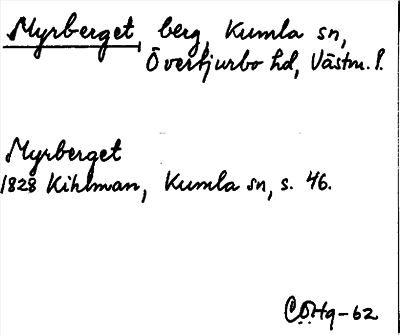 Myrberget, berg, Kumla sn,
Övertjurbo hd, Västm. l.
Myrberget
1828 Kihlman, Kumla sn, s. 46.
CÖHg-62